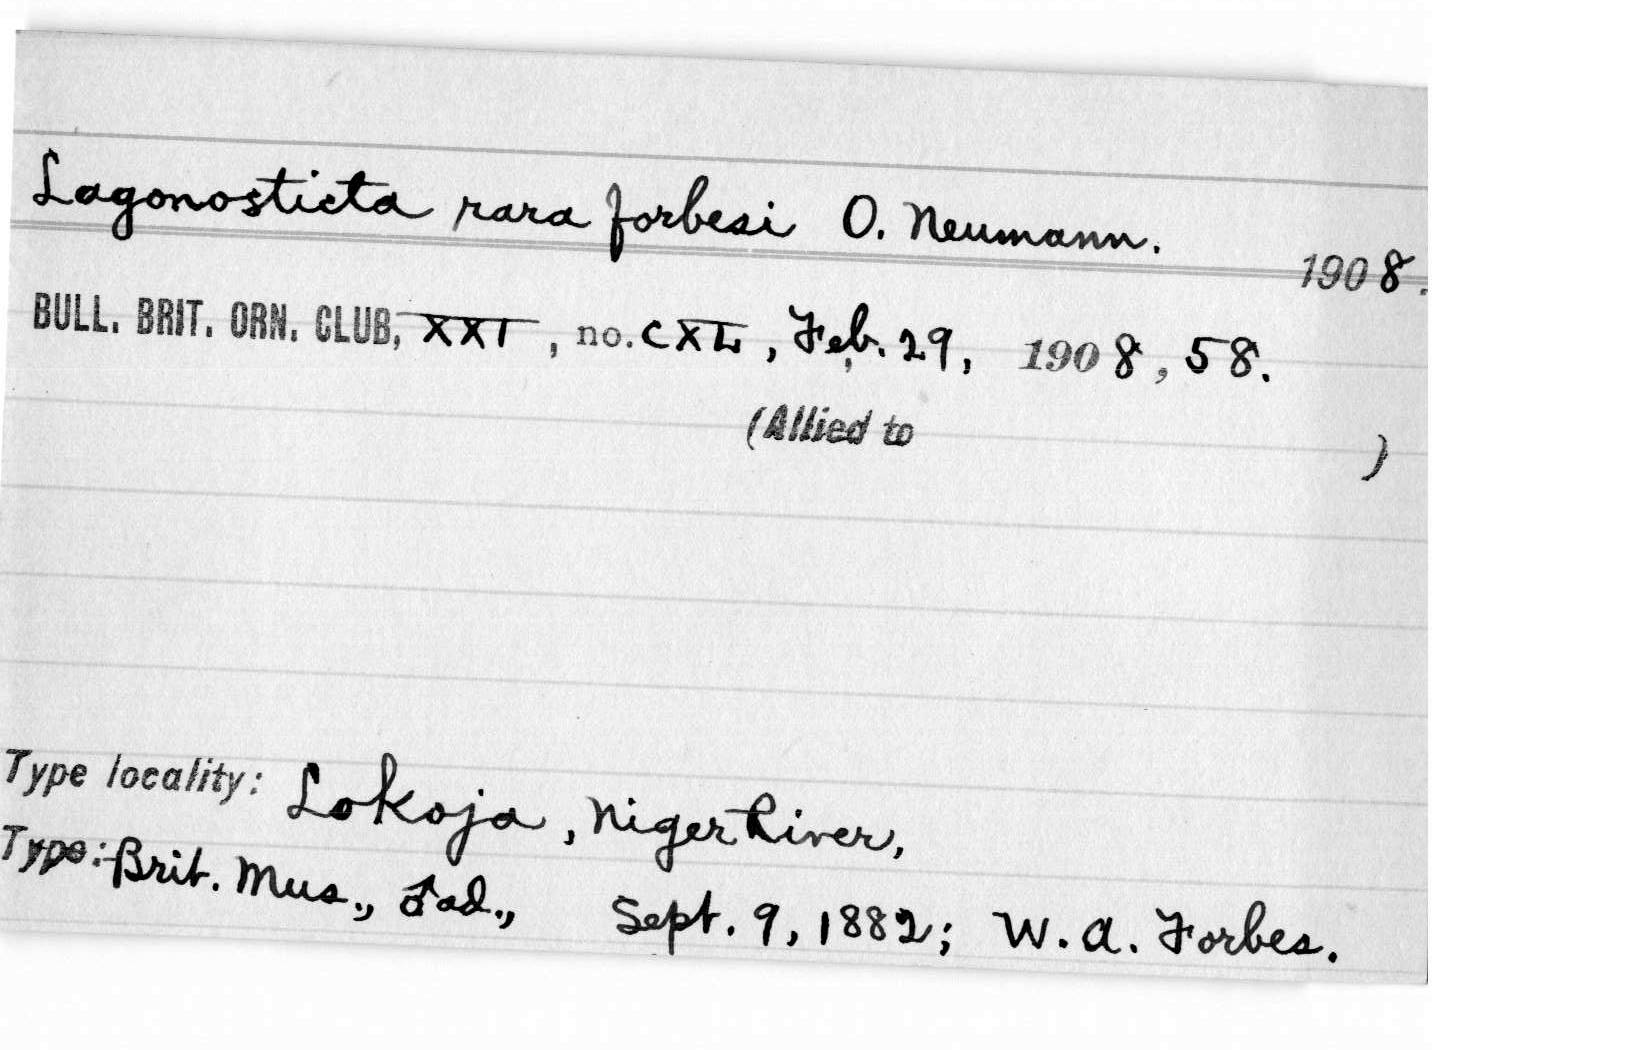 Lagonosticta rara forbesi O. Neumann.
1908.
BULL. BRIT. ORN. CLUB, XXI, no. CXL, Feb. 29, 1908, 58.
(Allied to )
Type locality: Lokoja, Niger River,
Type: Brit. Mus., ♂ ad., Sept. 9, 1882; W. A. Forbes.